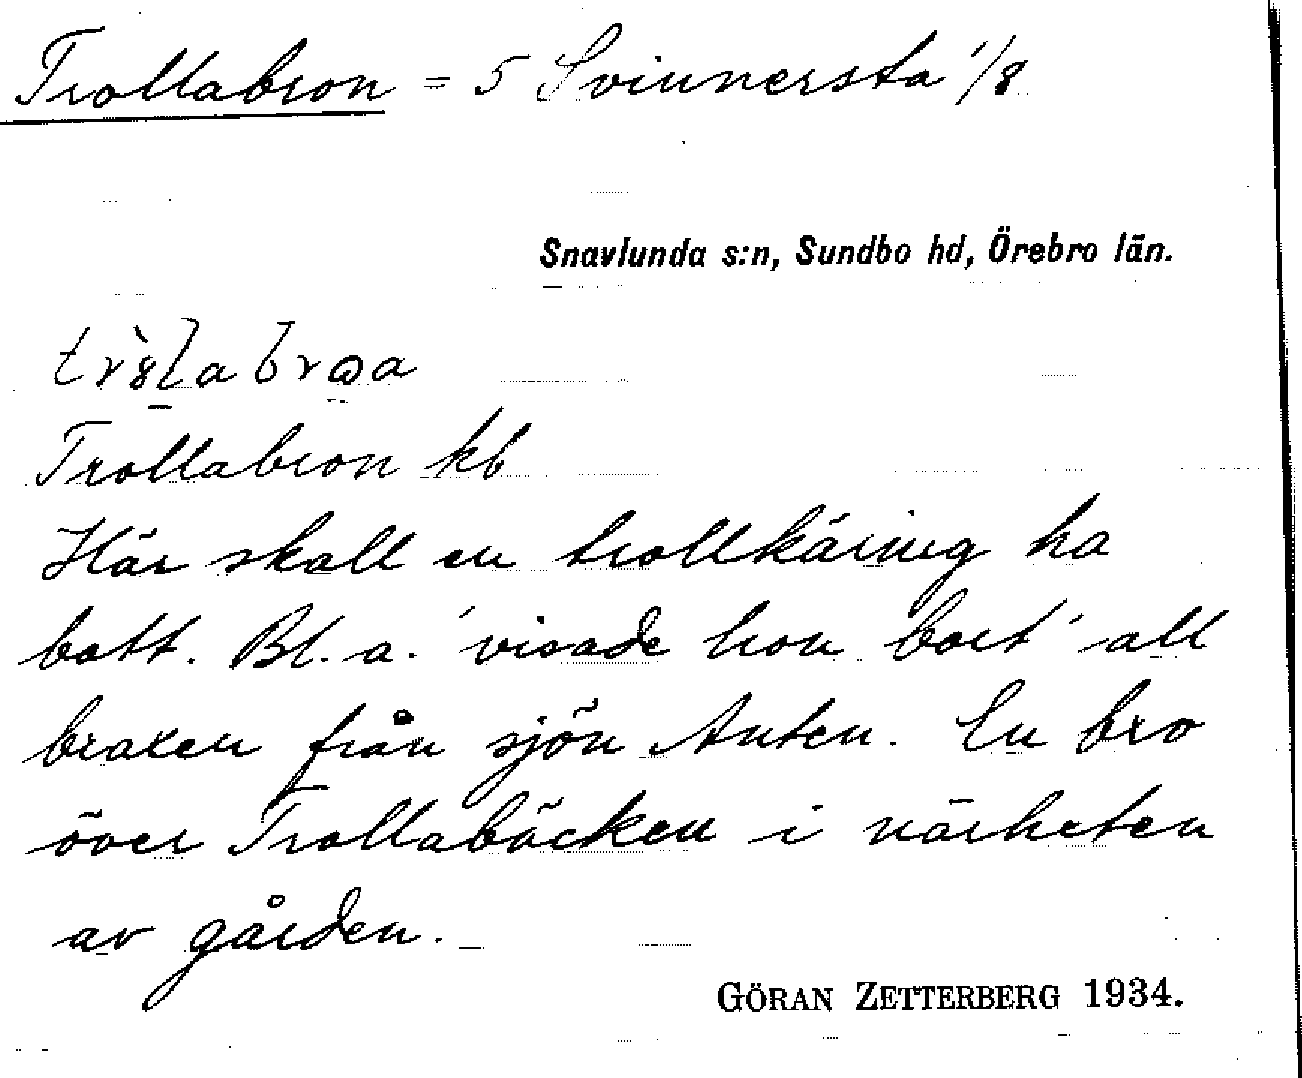 Trollabron = 5 Svinnersta 1/8
Snavlunda s:n, Sundbo hd, Örebro län.
Trollabron kb
Här skall en trollkäring ha
bott. Bl. a. 'visade hon bort' all
braxen från sjön Anten. En bro
över Trollabäcken i närheten
av gården.
GÖRAN ZETTERBERG 1934.